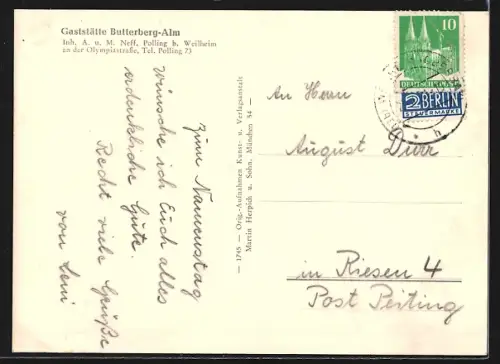 Gaststätte Butterberg-Alm
Inh. A. u. M. Neff, Polling b. Weilheim
an der Olympiastraße, Tel. Polling 73
Zum Namenstag
wünsche ich Euch alles
erdenkliche Gute.
Recht viele Grüße
von Leni
— 1745 — Orig.-Aufnahmen Kunst- u. Verlagsanstalt
Martin Herpich u. Sohn, München 54 —
An Herrn
August Dürr
in Riesen 4
Post Peiting
10
DEUTSCHE POST
2 BERLIN
STEUERMARKE
NOTOPFER
h